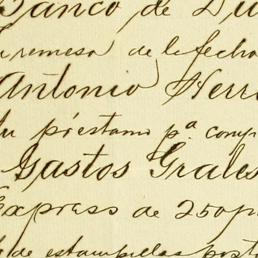 Banco de Du
remesa de la fecha
Antonio Herr
Su préstamo pª comp
Gastos Grales
Express de 250 p
de estampillas post